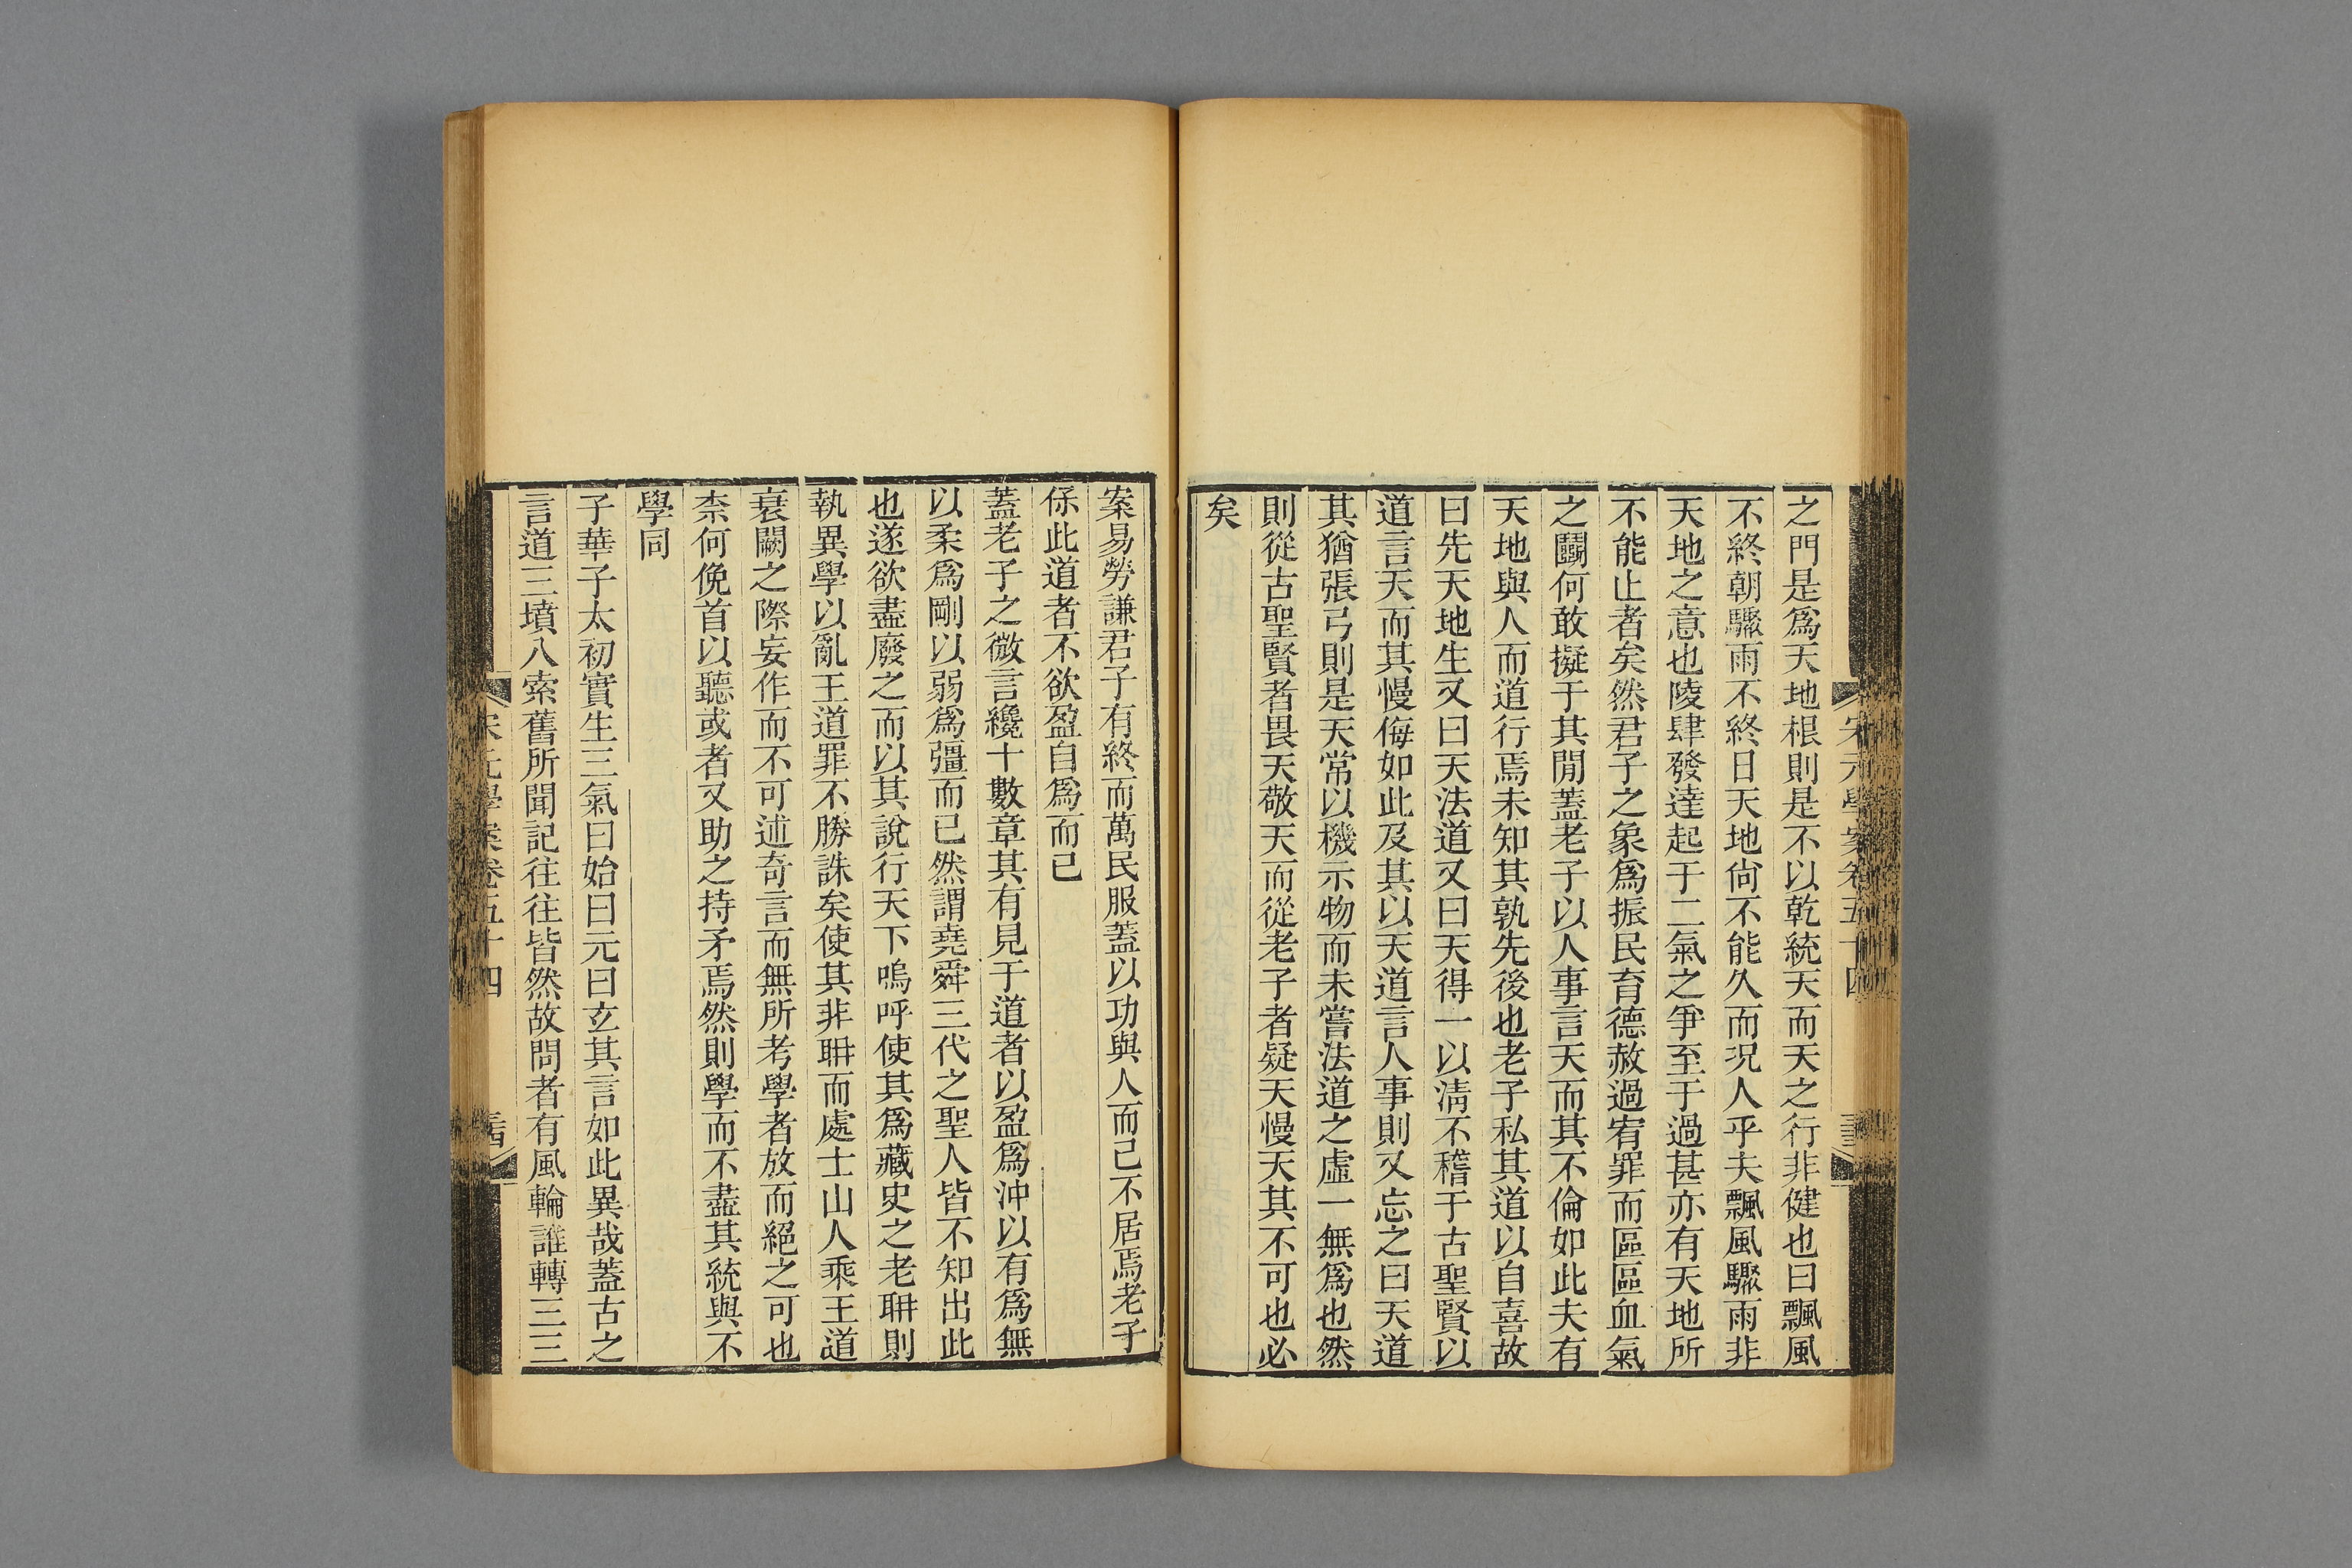 之門是爲天地根則是不以乾統天而天之行非健也曰飄風
不終朝驟雨不終日天地尙不能久而況人乎夫飄風驟雨非
天地之意也陵肆發達起于二氣之爭至于過甚亦有天地所
不能止者矣然君子之象爲振民育德赦過宥罪而區區血氣
之鬭何敢擬于其閒蓋老子以人事言天而其不倫如此夫有
天地與人而道行焉未知其孰先後也老子私其道以自喜故
曰先天地生又曰天法道又曰天得一以淸不稽于古聖賢以
道言天而其慢侮如此及其以天道言人事則又忘之曰天道
其猶張弓則是天常以機示物而未嘗法道之虛一無爲也然
則從古聖賢者畏天敬天而從老子者疑天慢天其不可也必
矣
宋元學案卷五十四
案易勞謙君子有終而萬民服蓋以功與人而己不居焉老子
係此道者不欲盈自爲而已
蓋老子之微言纔十數章其有見于道者以盈爲沖以有爲無
以柔爲剛以弱爲彊而已然謂堯舜三代之聖人皆不知出此
也遂欲盡廢之而以其說行天下嗚呼使其爲藏史之老耼則
執異學以亂王道罪不勝誅矣使其非耼而處士山人乘王道
衰闕之際妄作而不可述奇言而無所考學者放而絕之可也
柰何俛首以聽或者又助之持矛焉然則學而不盡其統與不
學同
子華子太初實生三氣曰始曰元曰玄其言如此異哉蓋古之
言道三墳八索舊所聞記往往皆然故問者有風輪誰轉三三
宋元學案卷五十四